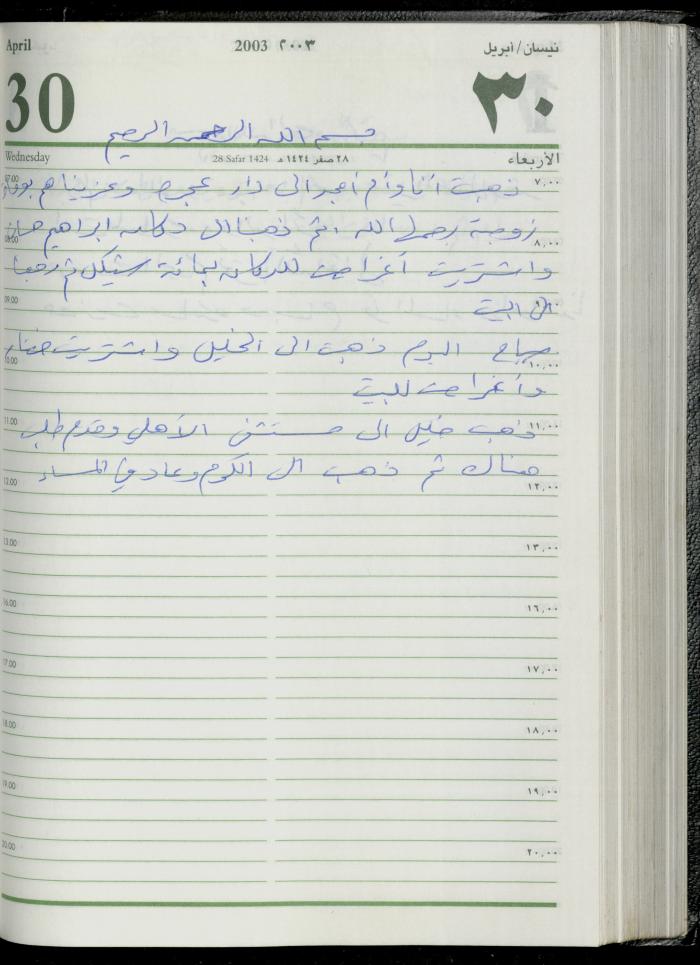 April 2003 ٢٠٠٣ نيسان/أبريل
30 ٣٠
بسم الله الرحمن الرحيم
Wednesday 28 Safar 1424 ٢٨ صفر ١٤٢٤ هـ الأربعاء
07.00 ذهبت أنا وأم أمجد الى دار عجوه وعزيناهم بوفاة ٧,٠٠
زوجة رحمها الله ثم ذهبنا الى دكانه ابراهيم
08.00 ٨,٠٠
واشتريت أغراض للدكانه بمائة شيكل ثم رجعنا
09.00 الى البيت
صباح اليوم ذهبت الى الخليل واشتريت
10.00 ١٠,٠٠
وأغراض للبيت
11.00 ١١,٠٠
ذهب خليل الى مستشفى الأهلي وقدم طلب
هناك ثم ذهب الى الكوم وعاد في المساء
12.00 ١٢,٠٠
13.00 ١٣,٠٠
16.00 ١٦,٠٠
17.00 ١٧,٠٠
18.00 ١٨,٠٠
19.00 ١٩,٠٠
20.00 ٢٠,٠٠